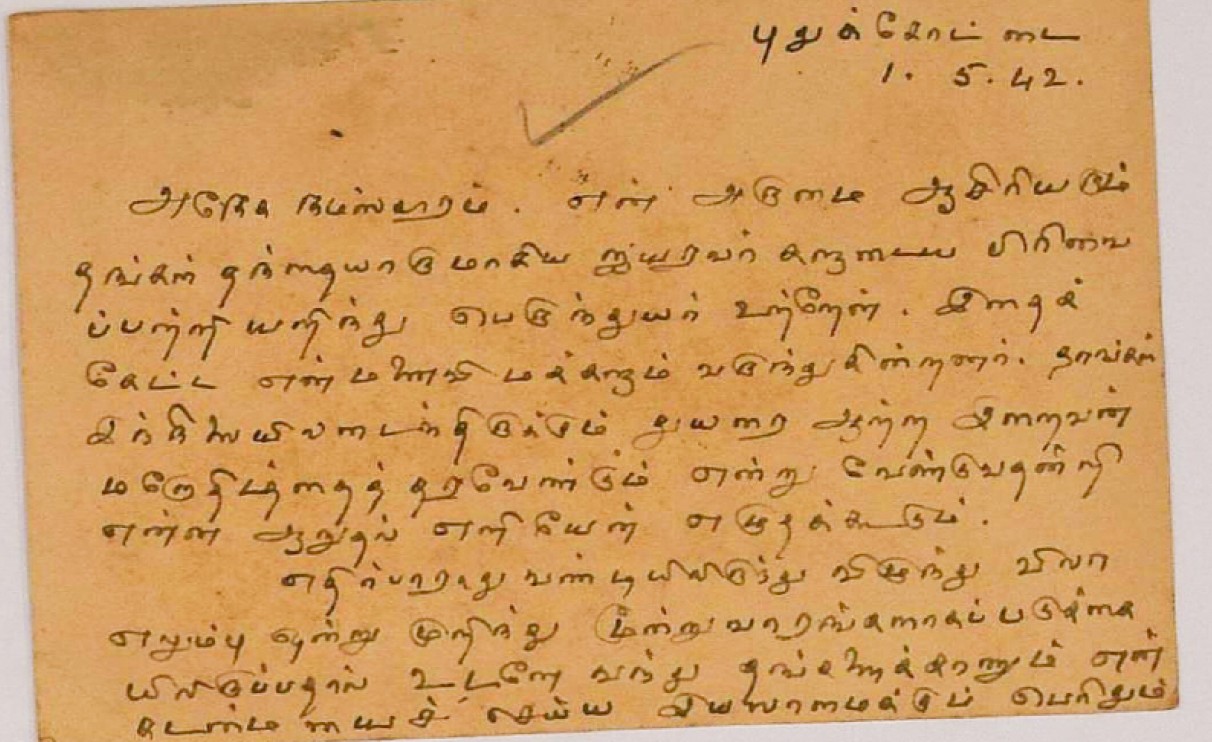 புதுக்கோட்டை
1. 5. 42.
அநேக நமஸ்காரம். என் அருமை ஆசிரியரும்
தங்கள் தந்தையாருமாகிய ஐயரவர்களுடைய பிரிவை
ப்பற்றி யறிந்து பெருந்துயர் உற்றேன். இதைக்
கேட்ட என் மனைவி மக்களும் வருந்துகின்றனர். தாங்கள்
இந்நிலையிலடைந்திருக்கும் துயரை ஆற்ற இறைவன்
மனோதிடத்தைத் தரவேண்டும் என்று வேண்டுவதன்றி
என்ன ஆறுதல் எளியேன் எழுதக்கூடும்.
எதிர்பாராது வண்டியிலிருந்து விழுந்து விலா
எலும்பு ஒன்று முறிந்து மூன்று வாரங்களாகப் படுக்கை
யிலிருப்பதால் உடனே வந்து தங்களைக்காணும் என்
கடன்மையைச் செய்ய இயலாமைக்குப் பெரிதும்